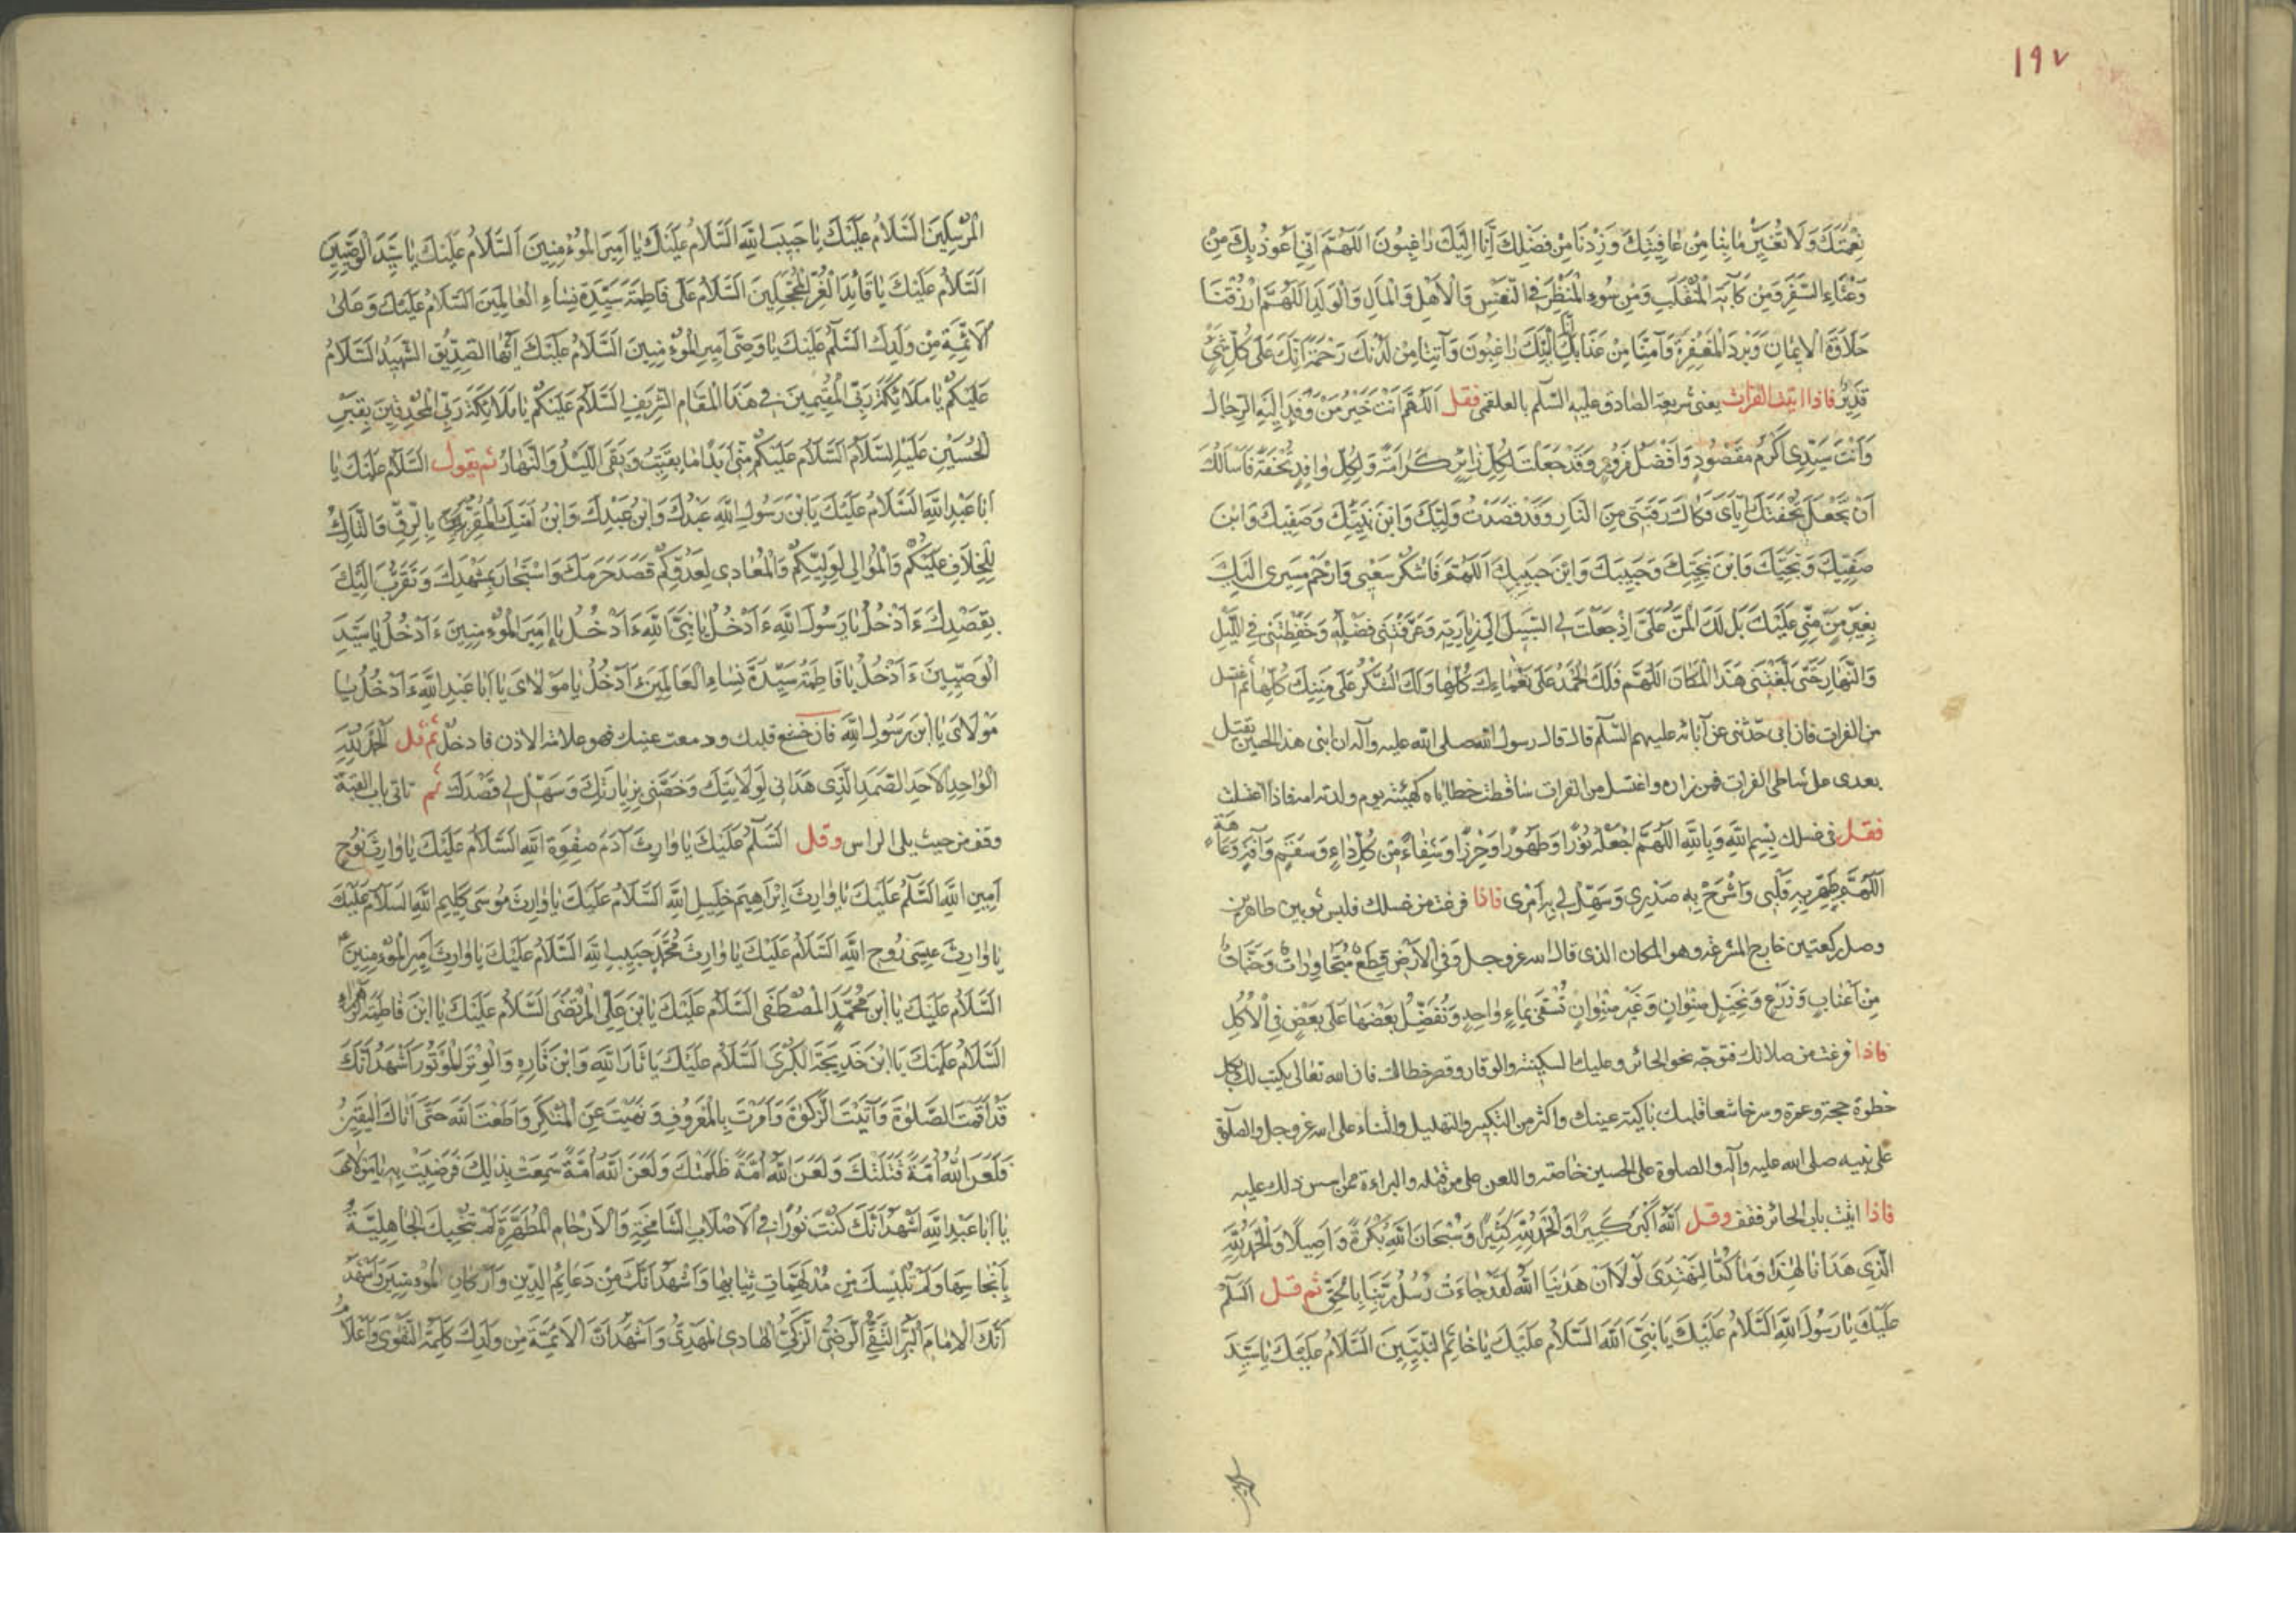 ١٩٧
نِعْمَتَكَ وَلَا تُغَيِّرْ مَا بِنَا مِنْ عَافِيَتِكَ وَزِدْنَا مِنْ فَضْلِكَ اِنَّا اِلَيْكَ رَاغِبُونَ اَللّٰهُمَّ اِنِّي اَعُوذُ بِكَ مِنْ
وَعْثَاءِ السَّفَرِ وَمِنْ كَآبَةِ الْمُنْقَلَبِ وَمِنْ سُوءِ الْمَنْظَرِ فِي النَّفْسِ وَالْاَهْلِ وَالْمَالِ وَالْوَلَدِ اَللّٰهُمَّ ارْزُقْنَا
حَلَاوَةَ الْاِيمَانِ وَبَرْدَ الْمَغْفِرَةِ وَآمِنَّا مِنْ عَذَابِكَ اِنَّا اِلَيْكَ رَاغِبُونَ وَآتِنَا مِنْ لَدُنْكَ رَحْمَةً اِنَّكَ عَلَى كُلِّ شَيْءٍ
قَدِيرٌ فاذا اتيت الفرات يعنى شريعة الصادق عليه السّلم بالعلقمى فقل اَللّٰهُمَّ اَنْتَ خَيْرُ مَنْ وَفَدَ اِلَيْهِ الرِّجَالُ
وَاَنْتَ سَيِّدِى اَكْرَمُ مَقْصُودٍ وَاَفْضَلُ مَزُورٍ وَقَدْ جَعَلْتَ لِكُلِّ زَائِرٍ كَرَامَةً وَلِكُلِّ وَافِدٍ تُحْفَةً فَاَسْاَلُكَ
اَنْ تَجْعَلَ تُحْفَتَكَ اِيَّاىَ فَكَاكَ رَقَبَتِى مِنَ النَّارِ وَقَدْ قَصَدْتُ وَلِيَّكَ وَابْنَ نَبِيِّكَ وَصَفِيَّكَ وَابْنَ
صَفِيِّكَ وَنَجِيَّكَ وَابْنَ نَجِيِّكَ وَحَبِيبَكَ وَابْنَ حَبِيبِكَ اَللّٰهُمَّ فَاشْكُرْ سَعْيِى وَارْحَمْ مَسِيرِى اِلَيْكَ
بِغَيْرِ مَنٍّ مِنِّى عَلَيْكَ بَلْ لَكَ الْمَنُّ عَلَىَّ اِذْ جَعَلْتَ لِى السَّبِيلَ اِلَى زِيَارَتِهِ وَعَرَّفْتَنِى فَضْلَهُ وَحَفِظْتَنِى فِى اللَّيْلِ
وَالنَّهَارِ حَتَّى بَلَّغْتَنِى هَذَا الْمَكَانَ اَللّٰهُمَّ فَلَكَ الْحَمْدُ عَلَى نَعْمَائِكَ كُلِّهَا وَلَكَ الشُّكْرُ عَلَى مِنَنِكَ كُلِّهَا ثم اغتسل
من الفرات فان ابى حدّثنى عن آبائه عليهم السّلم قال قال رسول الله صلى الله عليه وآله ان ابنى هذا الحسين يقتل
بعدى على شاطى الفرات فمن زاره واغتسل من الفرات تساقطت خطاياه كهيئته يوم ولدته امه فاذا اغتسلت
فقل فى غسلك بِسْمِ اللّٰهِ وَبِاللّٰهِ اَللّٰهُمَّ اجْعَلْهُ نُورًا وَطَهُورًا وَحِرْزًا وَشِفَاءً مِنْ كُلِّ دَاءٍ وَسَقَمٍ وَآفَةٍ وَعَاهَةٍ
اَللّٰهُمَّ طَهِّرْ بِهِ قَلْبِى وَاشْرَحْ بِهِ صَدْرِى وَسَهِّلْ لِى بِهِ اَمْرِى فاذا فرغت من غسلك فلبس ثوبين طاهرين
وصل ركعتين خارج المشرعة وهو المكان الذى قال الله عز وجل وَفِى الْاَرْضِ قِطَعٌ مُتَجَاوِرَاتٌ وَجَنَّاتٌ
مِنْ اَعْنَابٍ وَزَرْعٍ وَنَخِيلٍ صِنْوَانٍ وَغَيْرِ صِنْوَانٍ تُسْقَى بِمَاءٍ وَاحِدٍ وَنُفَضِّلُ بَعْضَهَا عَلَى بَعْضٍ فِى الْاُكُلِ
فاذا فرغت من صلاتك فتوجّه نحو الحائر وعليك السكينة والوقار وقصر خطاك فان الله تعالى يكتب لك بكل
خطوة حجة وعمرة وسر خاشعا قلبك باكية عينك واكثر من التكبير والتهليل والثناء على الله عز وجل والصلوة
على نبيه صلى الله عليه وآله والصلوة على الحسين خاصة واللعن على من قتله والبراءة ممن اسس ذلك عليه
فاذا اتيت باب الحائر فقف وقل اَللّٰهُ اَكْبَرُ كَبِيرًا وَالْحَمْدُ لِلّٰهِ كَثِيرًا وَسُبْحَانَ اللّٰهِ بُكْرَةً وَاَصِيلًا وَالْحَمْدُ لِلّٰهِ
الَّذِى هَدَانَا لِهٰذَا وَمَا كُنَّا لِنَهْتَدِىَ لَوْلَا اَنْ هَدَانَا اللّٰهُ لَقَدْ جَاءَتْ رُسُلُ رَبِّنَا بِالْحَقِّ ثم قل السَّلَمُ
عَلَيْكَ يَا رَسُولَ اللّٰهِ السَّلَامُ عَلَيْكَ يَا نَبِىَّ اللّٰهِ السَّلَامُ عَلَيْكَ يَا خَاتَمَ النَّبِيِّينَ السَّلَامُ عَلَيْكَ يَا سَيِّدَ
الْمُرْسَلِينَ السَّلَامُ عَلَيْكَ يَا حَبِيبَ اللّٰهِ السَّلَامُ عَلَيْكَ يَا اَمِيرَ الْمُؤْمِنِينَ اَلسَّلَامُ عَلَيْكَ يَا سَيِّدَ الْوَصِيِّينَ
اَلسَّلَامُ عَلَيْكَ يَا قَائِدَ الْغُرِّ الْمُحَجَّلِينَ السَّلَامُ عَلَى فَاطِمَةَ سَيِّدَةِ نِسَاءِ الْعَالَمِينَ السَّلَامُ عَلَيْكَ وَعَلَى
الْاَئِمَّةِ مِنْ وَلَدِكَ السَّلَمُ عَلَيْكَ يَا وَصِىَّ اَمِيرِ الْمُؤْمِنِينَ السَّلَامُ عَلَيْكَ اَيُّهَا الصِّدِّيقُ الشَّهِيدُ السَّلَامُ
عَلَيْكُمْ يَا مَلَائِكَةَ رَبِّىَ الْمُقِيمِينَ فِى هَذَا الْمَقَامِ الشَّرِيفِ السَّلَامُ عَلَيْكُمْ يَا مَلَائِكَةَ رَبِّىَ الْمُحْدِقِينَ بِقَبْرِ
الْحُسَيْنِ عَلَيْهِ السَّلَامُ السَّلَامُ عَلَيْكُمْ مِنِّى اَبَدًا مَا بَقِيتُ وَبَقِىَ اللَّيْلُ وَالنَّهَارُ ثم يقول السَّلَامُ عَلَيْكَ يَا
اَبَا عَبْدِ اللّٰهِ السَّلَامُ عَلَيْكَ يَا بْنَ رَسُولِ اللّٰهِ عَبْدُكَ وَابْنُ عَبْدِكَ وَابْنُ اَمَتِكَ الْمُقِرُّ بِالرِّقِّ وَالتَّارِكُ
لِلْخِلَافِ عَلَيْكُمْ وَالْمُوَالِى لِوَلِيِّكُمْ وَالْمُعَادِى لِعَدُوِّكُمْ قَصَدَ حَرَمَكَ وَاسْتَجَارَ بِمَشْهَدِكَ وَتَقَرَّبَ اِلَيْكَ
بِقَصْدِكَ ءَاَدْخُلُ يَا رَسُولَ اللّٰهِ ءَاَدْخُلُ يَا نَبِىَّ اللّٰهِ ءَاَدْخُلُ يَا اَمِيرَ الْمُؤْمِنِينَ ءَاَدْخُلُ يَا سَيِّدَ
الْوَصِيِّينَ ءَاَدْخُلُ يَا فَاطِمَةُ سَيِّدَةَ نِسَاءِ الْعَالَمِينَ ءَاَدْخُلُ يَا مَوْلَاىَ يَا اَبَا عَبْدِ اللّٰهِ ءَاَدْخُلُ يَا
مَوْلَاىَ يَا ابْنَ رَسُولِ اللّٰهِ فان خشع قلبك ودمعت عينك فهو علامة الاذن فادخل ثم قل اَلْحَمْدُ لِلّٰهِ
الْوَاحِدِ الْاَحَدِ الصَّمَدِ الَّذِى هَدَانِى لِوَلَايَتِكَ وَخَصَّنِى بِزِيَارَتِكَ وَسَهَّلَ لِى قَصْدَكَ ثم تاتى باب القبة
وقف من حيث يلى الراس وقل السَّلَمُ عَلَيْكَ يَا وَارِثَ آدَمَ صِفْوَةِ اللّٰهِ السَّلَامُ عَلَيْكَ يَا وَارِثَ نُوحٍ
اَمِينِ اللّٰهِ السَّلَمُ عَلَيْكَ يَا وَارِثَ اِبْرَاهِيمَ خَلِيلِ اللّٰهِ السَّلَامُ عَلَيْكَ يَا وَارِثَ مُوسَى كَلِيمِ اللّٰهِ السَّلَامُ عَلَيْكَ
يَا وَارِثَ عِيسَى رُوحِ اللّٰهِ السَّلَامُ عَلَيْكَ يَا وَارِثَ مُحَمَّدٍ حَبِيبِ اللّٰهِ السَّلَامُ عَلَيْكَ يَا وَارِثَ اَمِيرِ الْمُؤْمِنِينَ
السَّلَامُ عَلَيْكَ يَا ابْنَ مُحَمَّدٍ الْمُصْطَفَى السَّلَامُ عَلَيْكَ يَا بْنَ عَلِىٍّ الْمُرْتَضَى السَّلَامُ عَلَيْكَ يَا ابْنَ فَاطِمَةَ الزَّهْرَاءِ
السَّلَامُ عَلَيْكَ يَا ابْنَ خَدِيجَةَ الْكُبْرَى السَّلَامُ عَلَيْكَ يَا ثَارَ اللّٰهِ وَابْنَ ثَارِهِ وَالْوِتْرَ الْمَوْتُورَ اَشْهَدُ اَنَّكَ
قَدْ اَقَمْتَ الصَّلٰوةَ وَآتَيْتَ الزَّكٰوةَ وَاَمَرْتَ بِالْمَعْرُوفِ وَنَهَيْتَ عَنِ الْمُنْكَرِ وَاَطَعْتَ اللّٰهَ حَتَّى اَتَاكَ الْيَقِينُ
فَلَعَنَ اللّٰهُ اُمَّةً قَتَلَتْكَ وَلَعَنَ اللّٰهُ اُمَّةً ظَلَمَتْكَ وَلَعَنَ اللّٰهُ اُمَّةً سَمِعَتْ بِذٰلِكَ فَرَضِيَتْ بِهِ يَا مَوْلَاىَ
يَا اَبَا عَبْدِ اللّٰهِ اَشْهَدُ اَنَّكَ كُنْتَ نُورًا فِى الْاَصْلَابِ الشَّامِخَةِ وَالْاَرْحَامِ الْمُطَهَّرَةِ لَمْ تُنَجِّسْكَ الْجَاهِلِيَّةُ
بِاَنْجَاسِهَا وَلَمْ تُلْبِسْكَ مِنْ مُدْلَهِمَّاتِ ثِيَابِهَا وَاَشْهَدُ اَنَّكَ مِنْ دَعَائِمِ الدِّينِ وَاَرْكَانِ الْمُؤْمِنِينَ وَاَشْهَدُ
اَنَّكَ الْاِمَامُ الْبَرُّ التَّقِىُّ الرَّضِىُّ الزَّكِىُّ الْهَادِى الْمَهْدِىُّ وَاَشْهَدُ اَنَّ الْاَئِمَّةَ مِنْ وَلَدِكَ كَلِمَةُ التَّقْوَى وَاَعْلَامُ